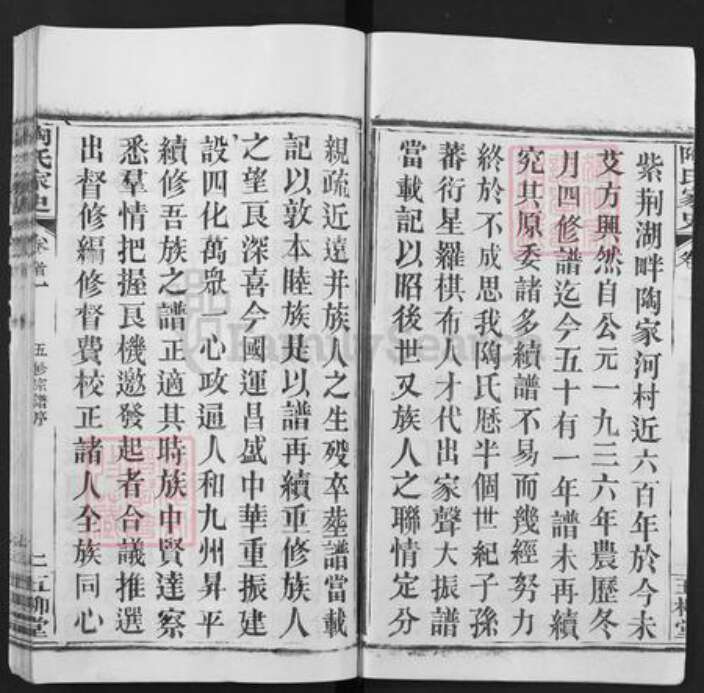 陶氏家史 卷
五柳堂
紫荆湖畔陶家河村近六百年於今未
艾方興然自公元一九三六年農歷冬
月四修譜迄今五十有一年譜未再續
究其原委諸多續譜不易而幾經努力
終於不成思我陶氏歷半個世紀子孫
蕃衍星羅棋布人才代出家聲大振譜
當載記以昭後世又族人之聯情定分
親疏近遠并族人之生歿卒塋譜當載
記以敦本睦族是以譜再續重修族人
之望良深喜今國運昌盛中華重振建
設四化萬眾一心政通人和九州昇平
續修吾族之譜正適其時族中賢達察
悉羣情把握良機邀發起者合議推選
出督修編修督費校正諸人全族同心
陶氏家史 卷首一
五修宗譜序
二 五柳堂
FamilySearch